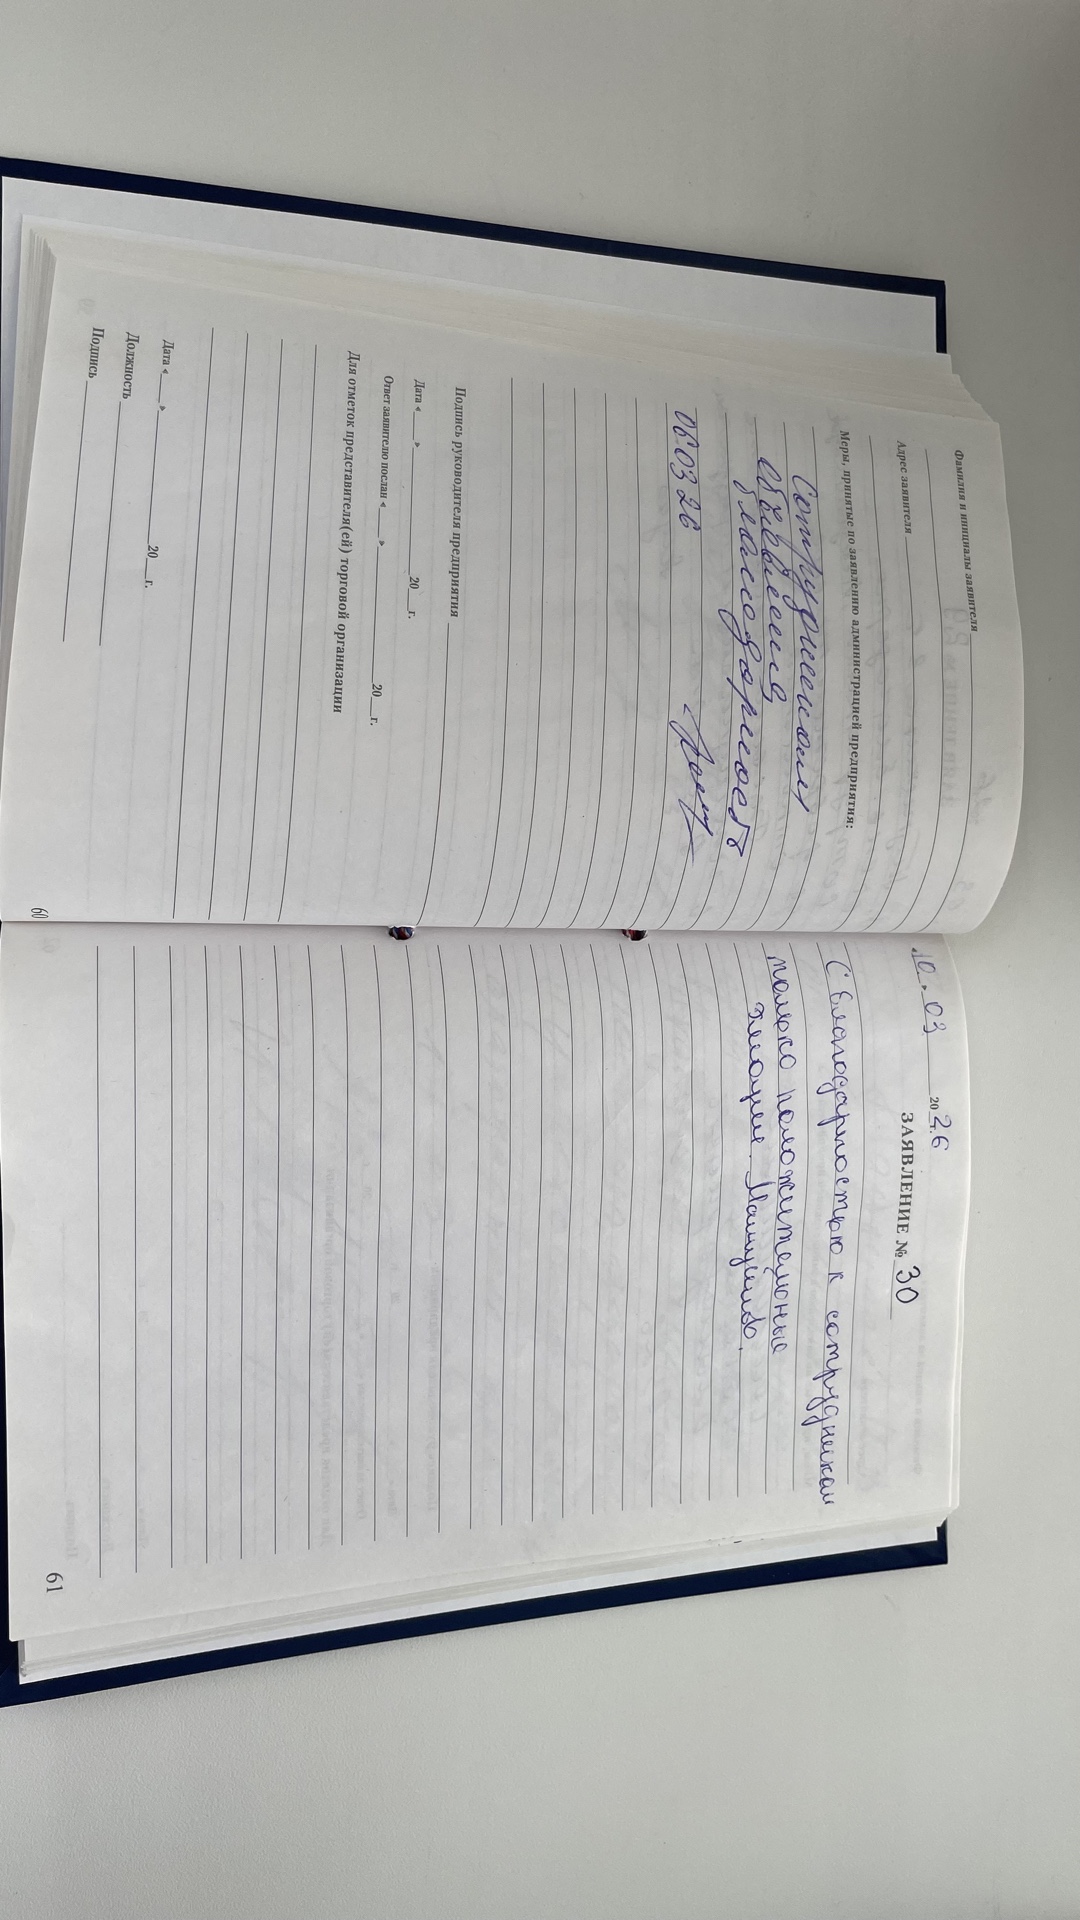 Фамилия и инициалы заявителя
Адрес заявителя
Меры, принятые по заявлению администрацией предприятия:
Сотрудникам
объявлена
благодарность
06 03 26
Подпись руководителя предприятия
Дата «___» ___ 20__г.
Ответ заявителю послан «___» ___ 20__г.
Для отметок представителя(ей) торговой организации
Дата «___» ___ 20__г.
Должность
Подпись
60
10.03 2026
ЗАЯВЛЕНИЕ № 30
С благодарностью к сотрудникам
только положительные
эмоции.
61